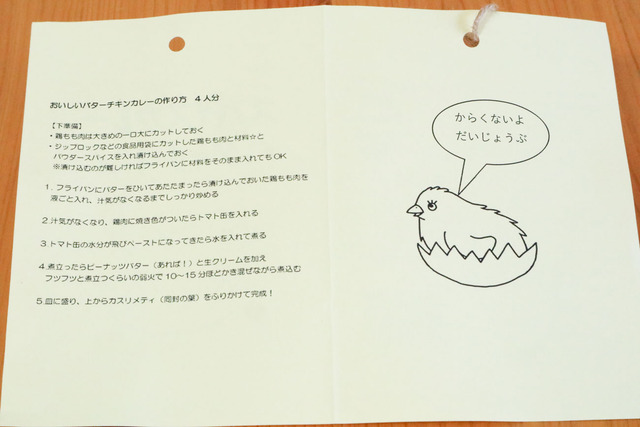 おいしいバターチキンカレーの作り方　4人分
【下準備】
・鶏もも肉は大きめの一口大にカットしておく
・ジップロックなどの食品用袋にカットした鶏もも肉と材料☆と
パウダースパイスを入れ漬け込んでおく
※漬け込むのが難しければフライパンに材料をそのまま入れてもOK
1．フライパンにバターをひいてあたたまったら漬け込んでおいた鶏もも肉を
液ごと入れ、汁気がなくなるまでしっかり炒める
2.汁気がなくなり、鶏肉に焼き色がついたらトマト缶を入れる
3.トマト缶の水分が飛びペーストになってきたら水を入れて煮る
4.煮立ったらピーナッツバター（あれば！）と生クリームを加え
フツフツと煮立つくらいの弱火で10～15分ほどかき混ぜながら煮込む
5.皿に盛り、上からカスリメティ（同封の葉）をふりかけて完成！
からくないよ
だいじょうぶ